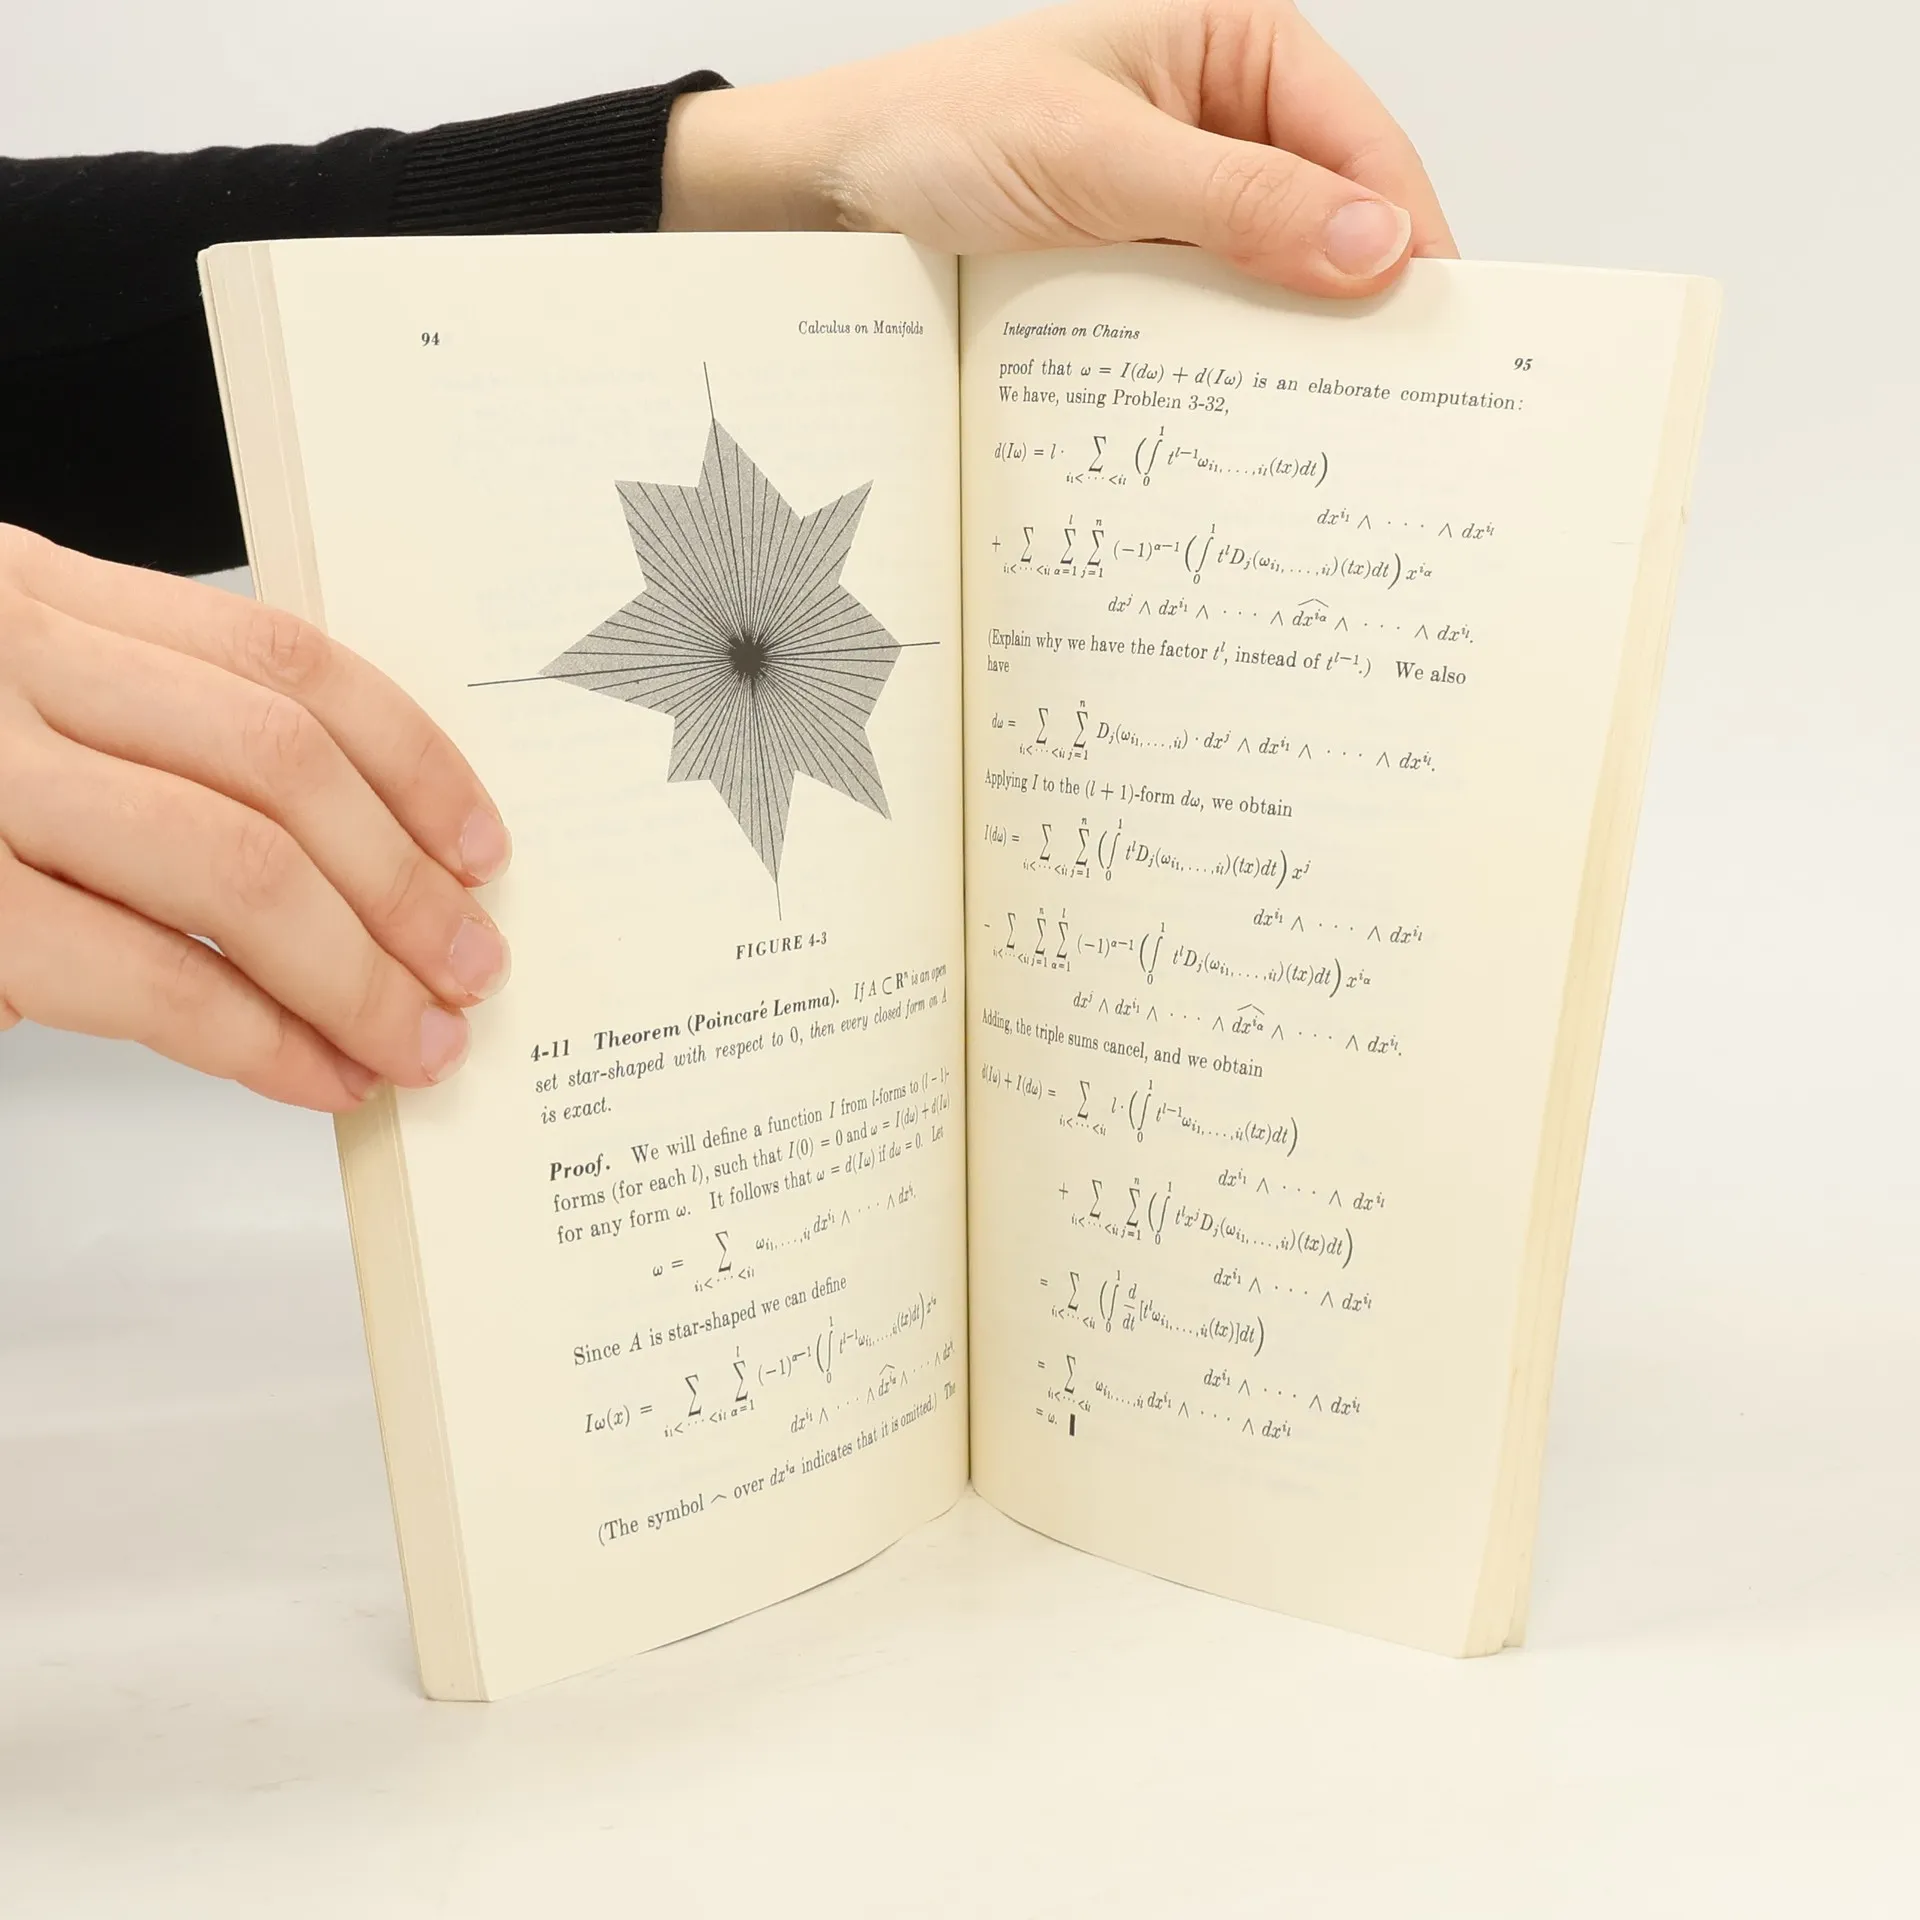 94
Calculus on Manifolds
FIGURE 4-3
4-11 Theorem (Poincaré Lemma). If A ⊂ Rⁿ is an open
set star-shaped with respect to 0, then every closed form on A
is exact.
Proof. We will define a function I from l-forms to (l − 1)-
forms (for each l), such that I(0) = 0 and ω = I(dω) + d(Iω)
for any form ω. It follows that ω = d(Iω) if dω = 0. Let
ω = ∑_{i₁<···<i_l} ω_{i₁,...,i_l} dx^{i₁} ∧ · · · ∧ dx^{i_l}.
Since A is star-shaped we can define
Iω(x) = ∑_{i₁<···<i_l} ∑_{α=1}^{l} (−1)^{α−1} (∫₀¹ t^{l−1}ω_{i₁,...,i_l}(tx)dt) x^{i_α}
dx^{i₁} ∧ · · · ∧ \widehat{dx^{i_α}} ∧ · · · ∧ dx^{i_l}.
(The symbol ⌢ over dx^{i_α} indicates that it is omitted.) The
Integration on Chains
95
proof that ω = I(dω) + d(Iω) is an elaborate computation:
We have, using Problem 3-32,
d(Iω) = l · ∑_{i₁<···<i_l} (∫₀¹ t^{l−1}ω_{i₁,...,i_l}(tx)dt)
dx^{i₁} ∧ · · · ∧ dx^{i_l}
+ ∑_{i₁<···<i_l} ∑_{α=1}^{l} ∑_{j=1}^{n} (−1)^{α−1} (∫₀¹ t^{l}D_j(ω_{i₁,...,i_l})(tx)dt) x^{i_α}
dx^{j} ∧ dx^{i₁} ∧ · · · ∧ \widehat{dx^{i_α}} ∧ · · · ∧ dx^{i_l}.
(Explain why we have the factor t^{l}, instead of t^{l−1}.) We also
have
dω = ∑_{i₁<···<i_l} ∑_{j=1}^{n} D_j(ω_{i₁,...,i_l}) · dx^{j} ∧ dx^{i₁} ∧ · · · ∧ dx^{i_l}.
Applying I to the (l + 1)-form dω, we obtain
I(dω) = ∑_{i₁<···<i_l} ∑_{j=1}^{n} (∫₀¹ t^{l}D_j(ω_{i₁,...,i_l})(tx)dt) x^{j}
dx^{i₁} ∧ · · · ∧ dx^{i_l}
− ∑_{i₁<···<i_l} ∑_{j=1}^{n} ∑_{α=1}^{l} (−1)^{α−1} (∫₀¹ t^{l}D_j(ω_{i₁,...,i_l})(tx)dt) x^{i_α}
dx^{j} ∧ dx^{i₁} ∧ · · · ∧ \widehat{dx^{i_α}} ∧ · · · ∧ dx^{i_l}.
Adding, the triple sums cancel, and we obtain
d(Iω) + I(dω) = ∑_{i₁<···<i_l} l · (∫₀¹ t^{l−1}ω_{i₁,...,i_l}(tx)dt)
dx^{i₁} ∧ · · · ∧ dx^{i_l}
+ ∑_{i₁<···<i_l} ∑_{j=1}^{n} (∫₀¹ t^{l}x^{j}D_j(ω_{i₁,...,i_l})(tx)dt)
dx^{i₁} ∧ · · · ∧ dx^{i_l}
= ∑_{i₁<···<i_l} (∫₀¹ d/dt [t^{l}ω_{i₁,...,i_l}(tx)]dt)
dx^{i₁} ∧ · · · ∧ dx^{i_l}
= ∑_{i₁<···<i_l} ω_{i₁,...,i_l} dx^{i₁} ∧ · · · ∧ dx^{i_l}
= ω. ▮